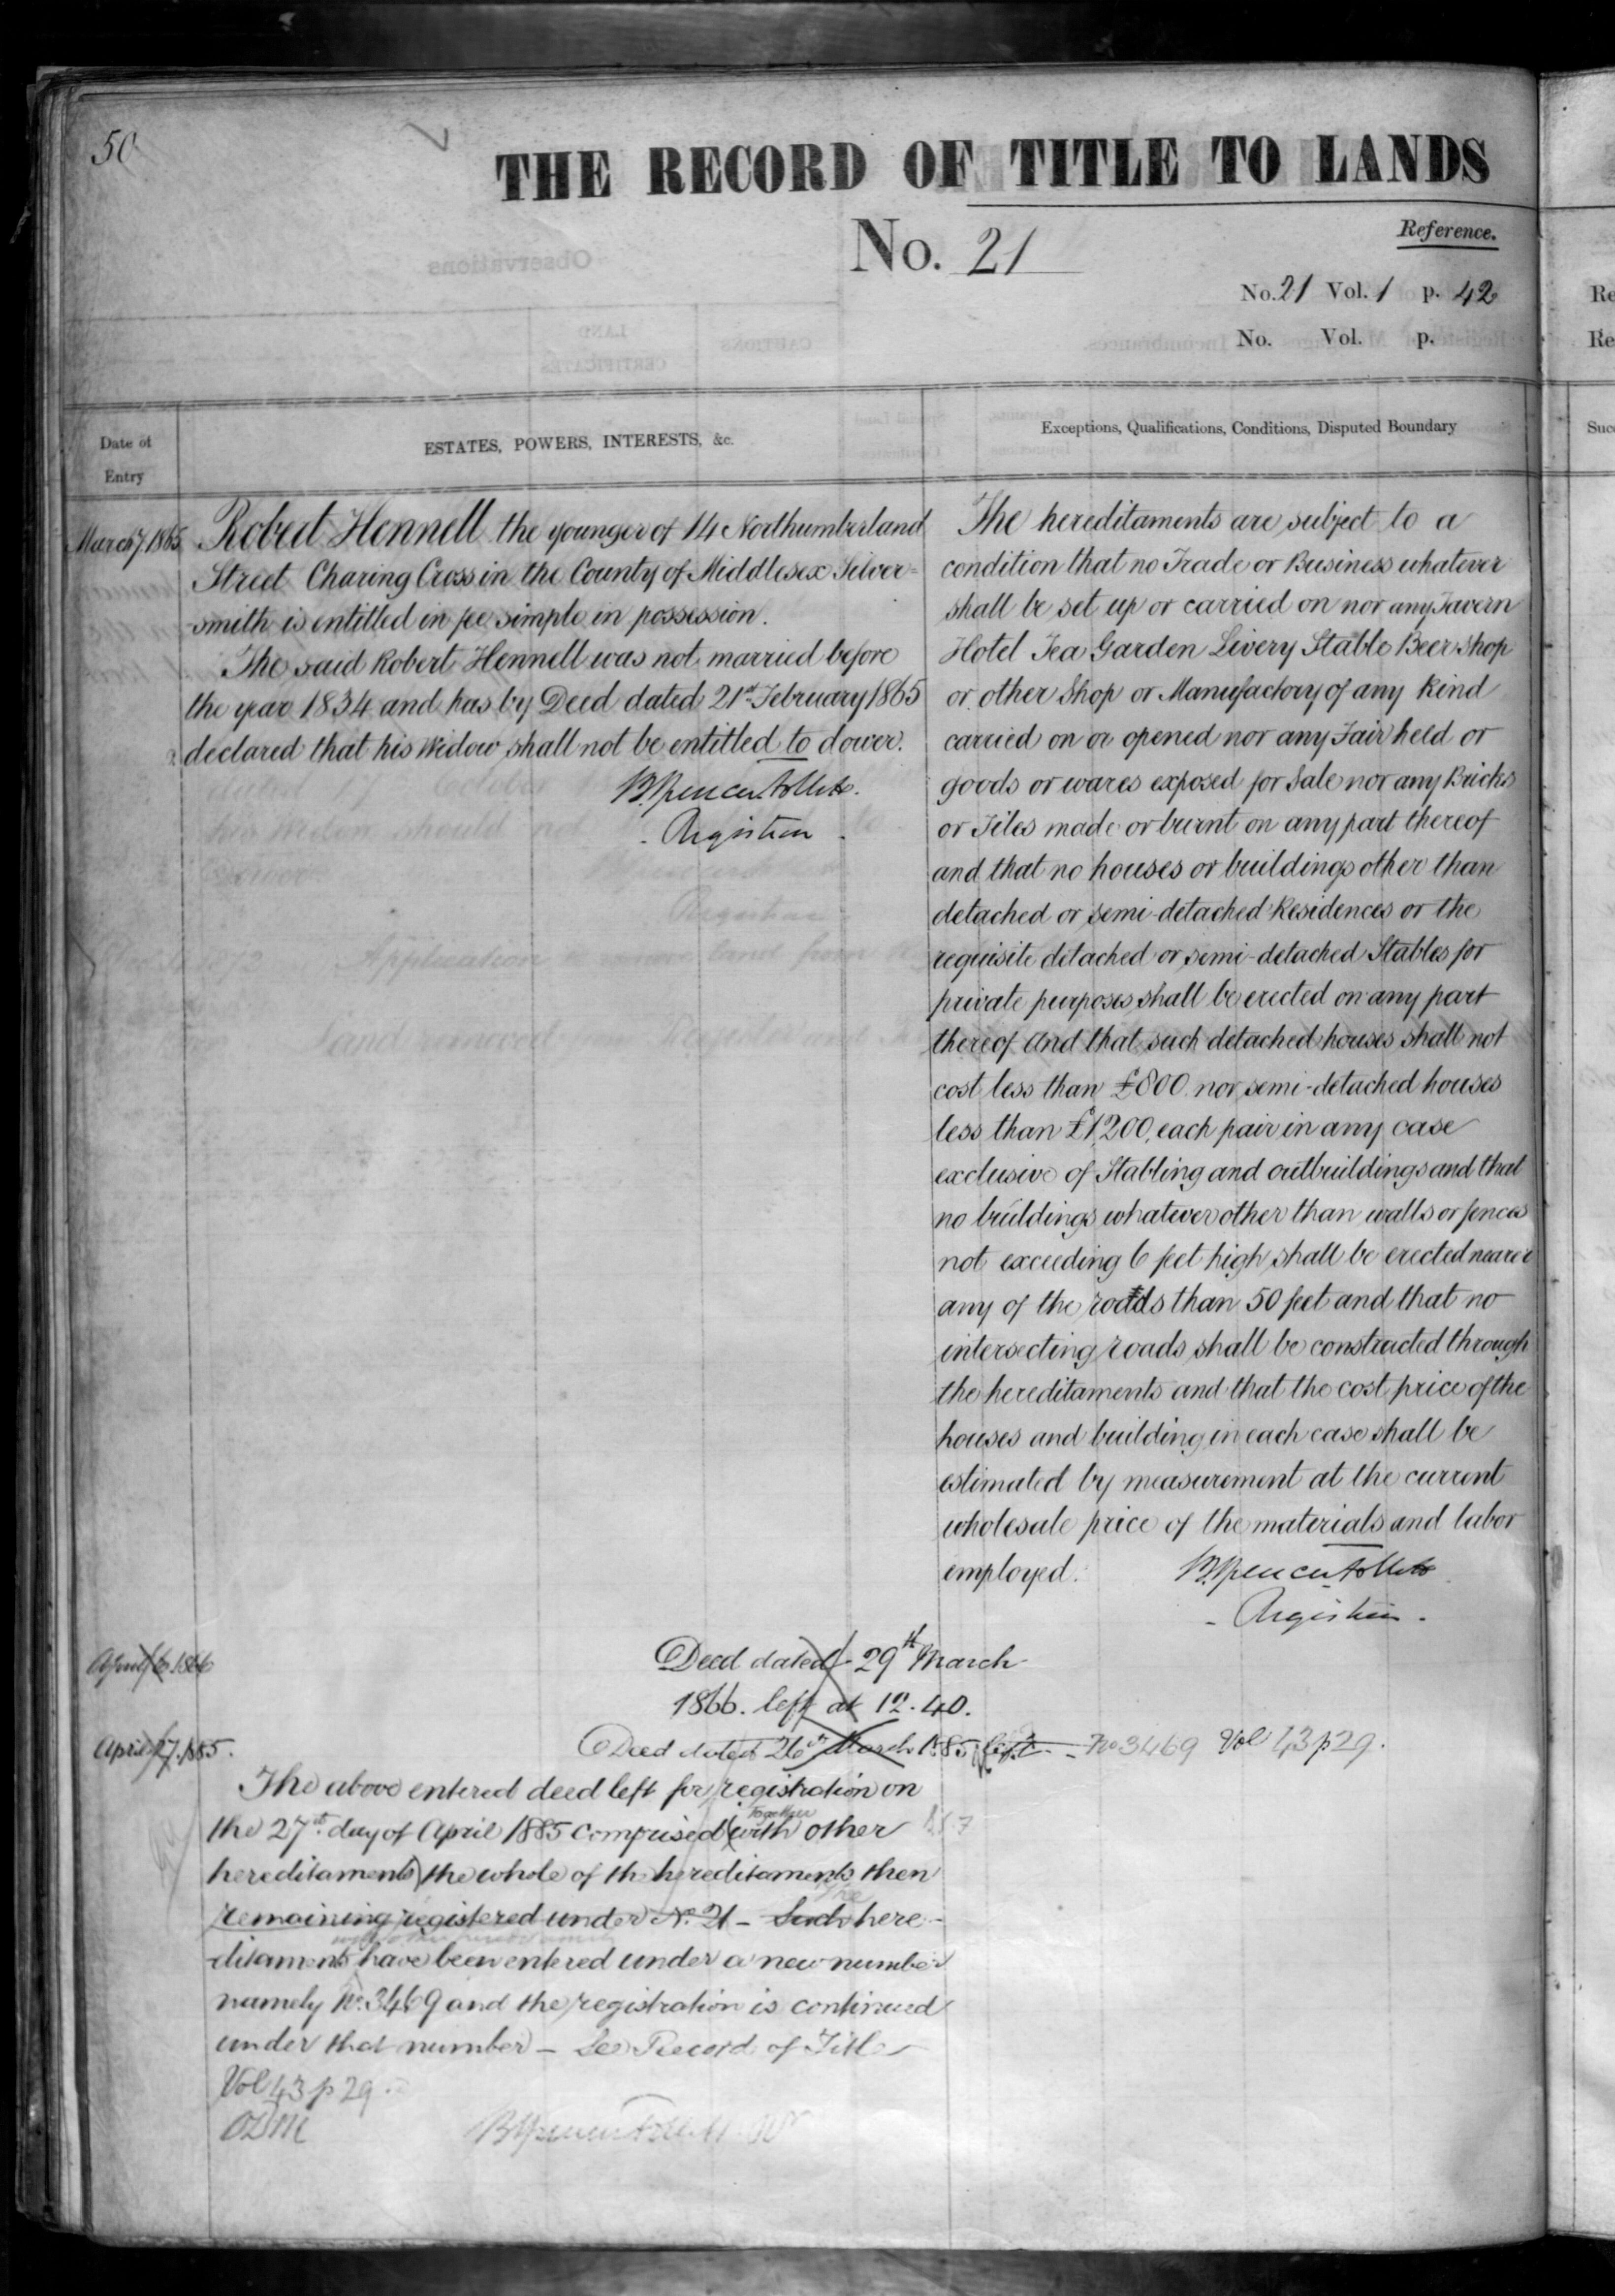 50
THE RECORD OF TITLE TO LANDS
No. 21
Reference.
No. 21 Vol. 1 p. 42
No. Vol. p.
Date of
Entry
ESTATES, POWERS, INTERESTS, &c.
Exceptions, Qualifications, Conditions, Disputed Boundary
March 7 1865
Robert Hennell the younger of 14 Northumberland
Street Charing Cross in the County of Middlesex Silver=
smith is entitled in fee simple in possession.
The said Robert Hennell was not married before
the year 1834 and has by Deed dated 21st February 1865
declared that his Widow shall not be entitled to dower.
B. Spencer Follett.
Registrar.
The hereditaments are subject to a
condition that no Trade or Business whatever
shall be set up or carried on nor any Tavern
Hotel Tea Garden Livery Stable Beer shop
or other Shop or Manufactory of any kind
carried on or opened nor any Fair held or
goods or wares exposed for Sale nor any Bricks
or Tiles made or burnt on any part thereof
and that no houses or buildings other than
detached or semi-detached Residences or the
requisite detached or semi-detached Stables for
private purposes shall be erected on any part
thereof And that such detached houses shall not
cost less than £800 nor semi-detached houses
less than £1,200, each pair in any case
exclusive of Stabling and outbuildings and that
no buildings whatever other than walls or fences
not exceeding 6 feet high shall be erected nearer
any of the roads than 50 feet and that no
intersecting roads shall be constructed through
the hereditaments and that the cost price of the
houses and building in each case shall be
estimated by measurement at the current
wholesale price of the materials and labor
employed.
B. Spencer Follett
Registrar.
April 6 1866
Deed dated 29th March
1866. left at 12.40.
April 27. 1885.
Deed dated 26th March 1885 left - No 3469 Vol 43 p 29.
The above entered deed left for registration on
the 27th day of April 1885 comprised (together with other
hereditaments) the whole of the hereditaments then
remaining registered under No. 21 - Such here-
The
ditaments have been entered under a new number
namely No. 3469 and the registration is continued
under that number - See Record of Title
Vol 43 p 29.
B Spencer Follett